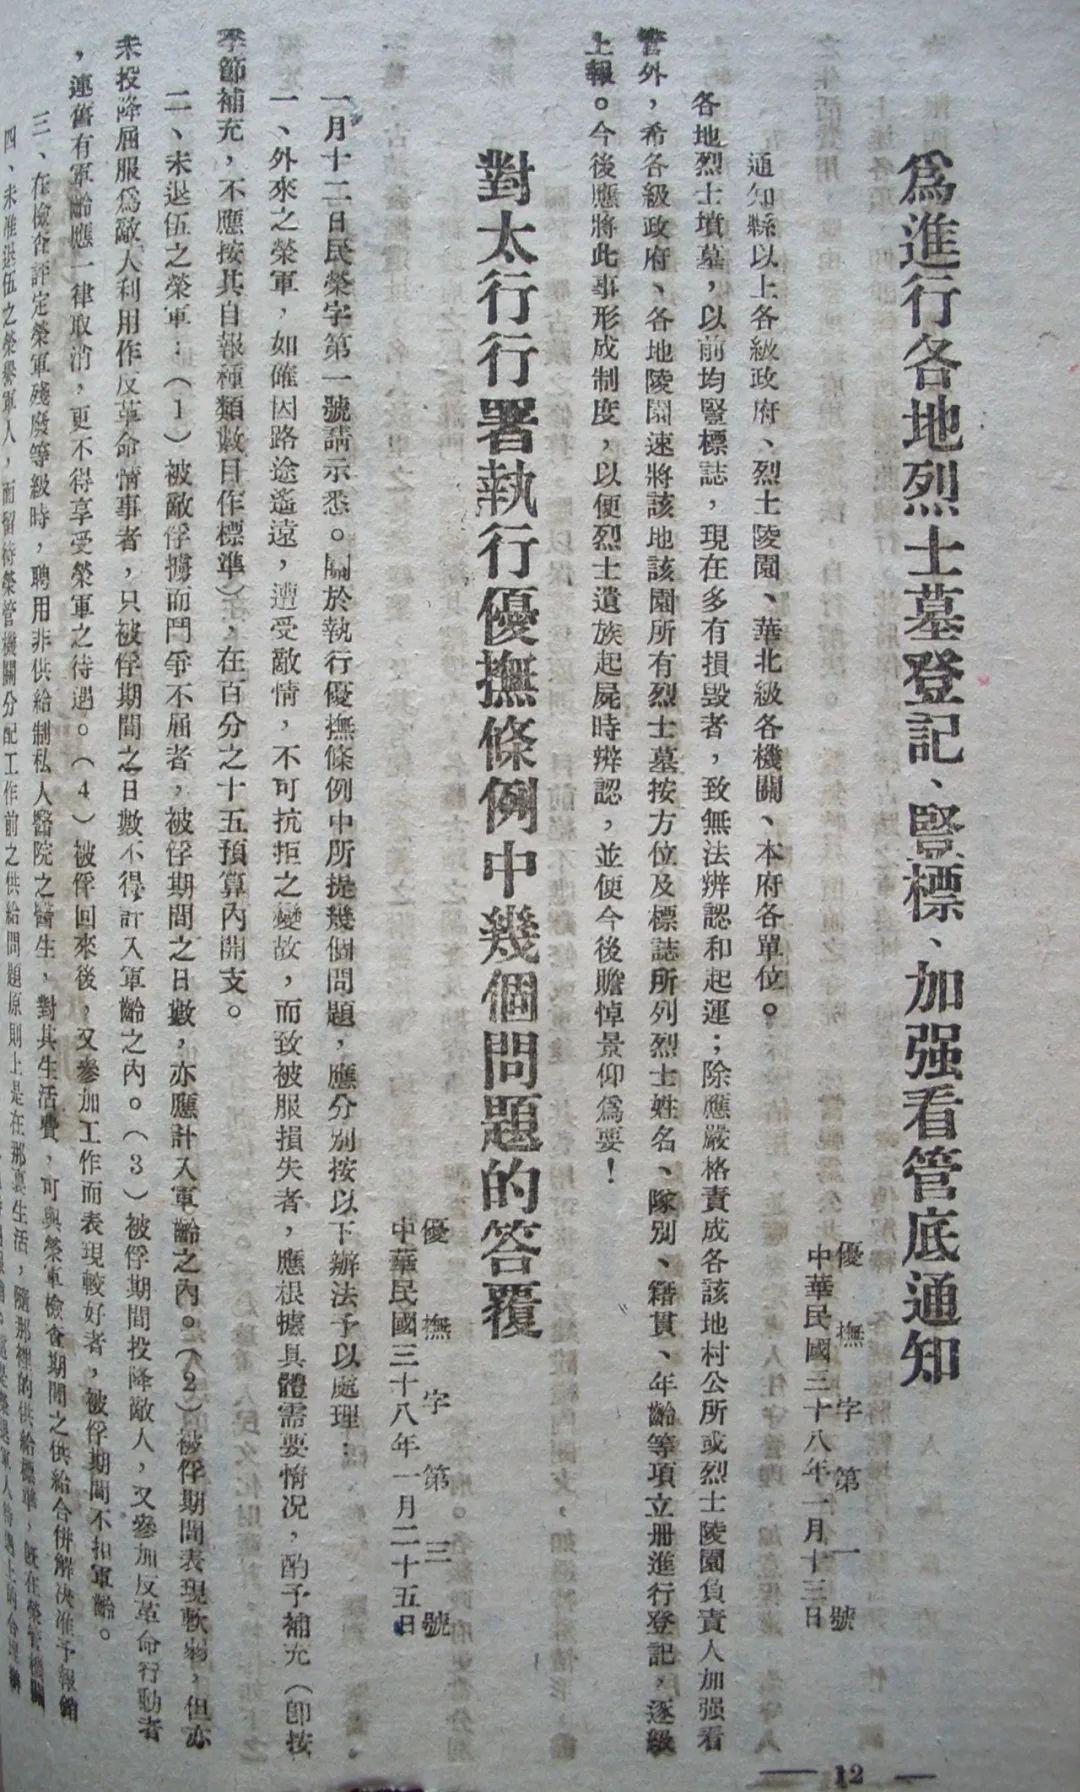 爲進行各地烈士墓登記、豎標、加强看管底通知
優撫字第一號
中華民國三十八年一月十三日
通知縣以上各級政府、烈士陵園、華北級各機關、本府各單位。
各地烈士墳墓，以前均豎標誌，現在多有損毀者，致無法辨認和起運；除應嚴格責成各該地村公所或烈士陵園負責人加强看
管外，希各級政府、各地陵園速將該地該園所有烈士墓按方位及標誌所列烈士姓名、隊別、籍貫、年齡等項立册進行登記，逐級
上報。今後應將此事形成制度，以便烈士遺族起屍時辨認，並便今後瞻悼景仰爲要！
對太行行署執行優撫條例中幾個問題的答覆
優撫字第三號
中華民國三十八年一月二十五日
一月十二日民榮字第一號請示悉。關於執行優撫條例中所提幾個問題，應分別按以下辦法予以處理：
一、外來之榮軍，如確因路途遙遠，遭受敵情，不可抗拒之變故，而致被服損失者，應根據具體需要情况，酌予補充（卽按
季節補充，不應按其自報種類數目作標準），在百分之十五預算內開支。
二、未退伍之榮軍：（1）被敵俘擄而鬥爭不屈者，被俘期間之日數，亦應計入軍齡之內。（2）被俘期間表現軟弱，但亦
未投降屈服爲敵人利用作反革命情事者，只被俘期間之日數不得計入軍齡之內。（3）被俘期間投降敵人，又參加反革命行動者
，連舊有軍齡應一律取消，更不得享受榮軍之待遇。（4）被俘回來後，又參加工作而表現較好者，被俘期間不扣軍齡。
三、在檢查評定榮軍殘廢等級時，聘用非供給制私人醫院之醫生，對其生活費，可與榮軍檢查期間之供給合併解決准予報銷
四、未准退伍之榮譽軍人，而留待榮管機關分配工作前之供給問題原則上是在那裏生活，隨那裡的供給標準，旣在榮管機關
— 12 —